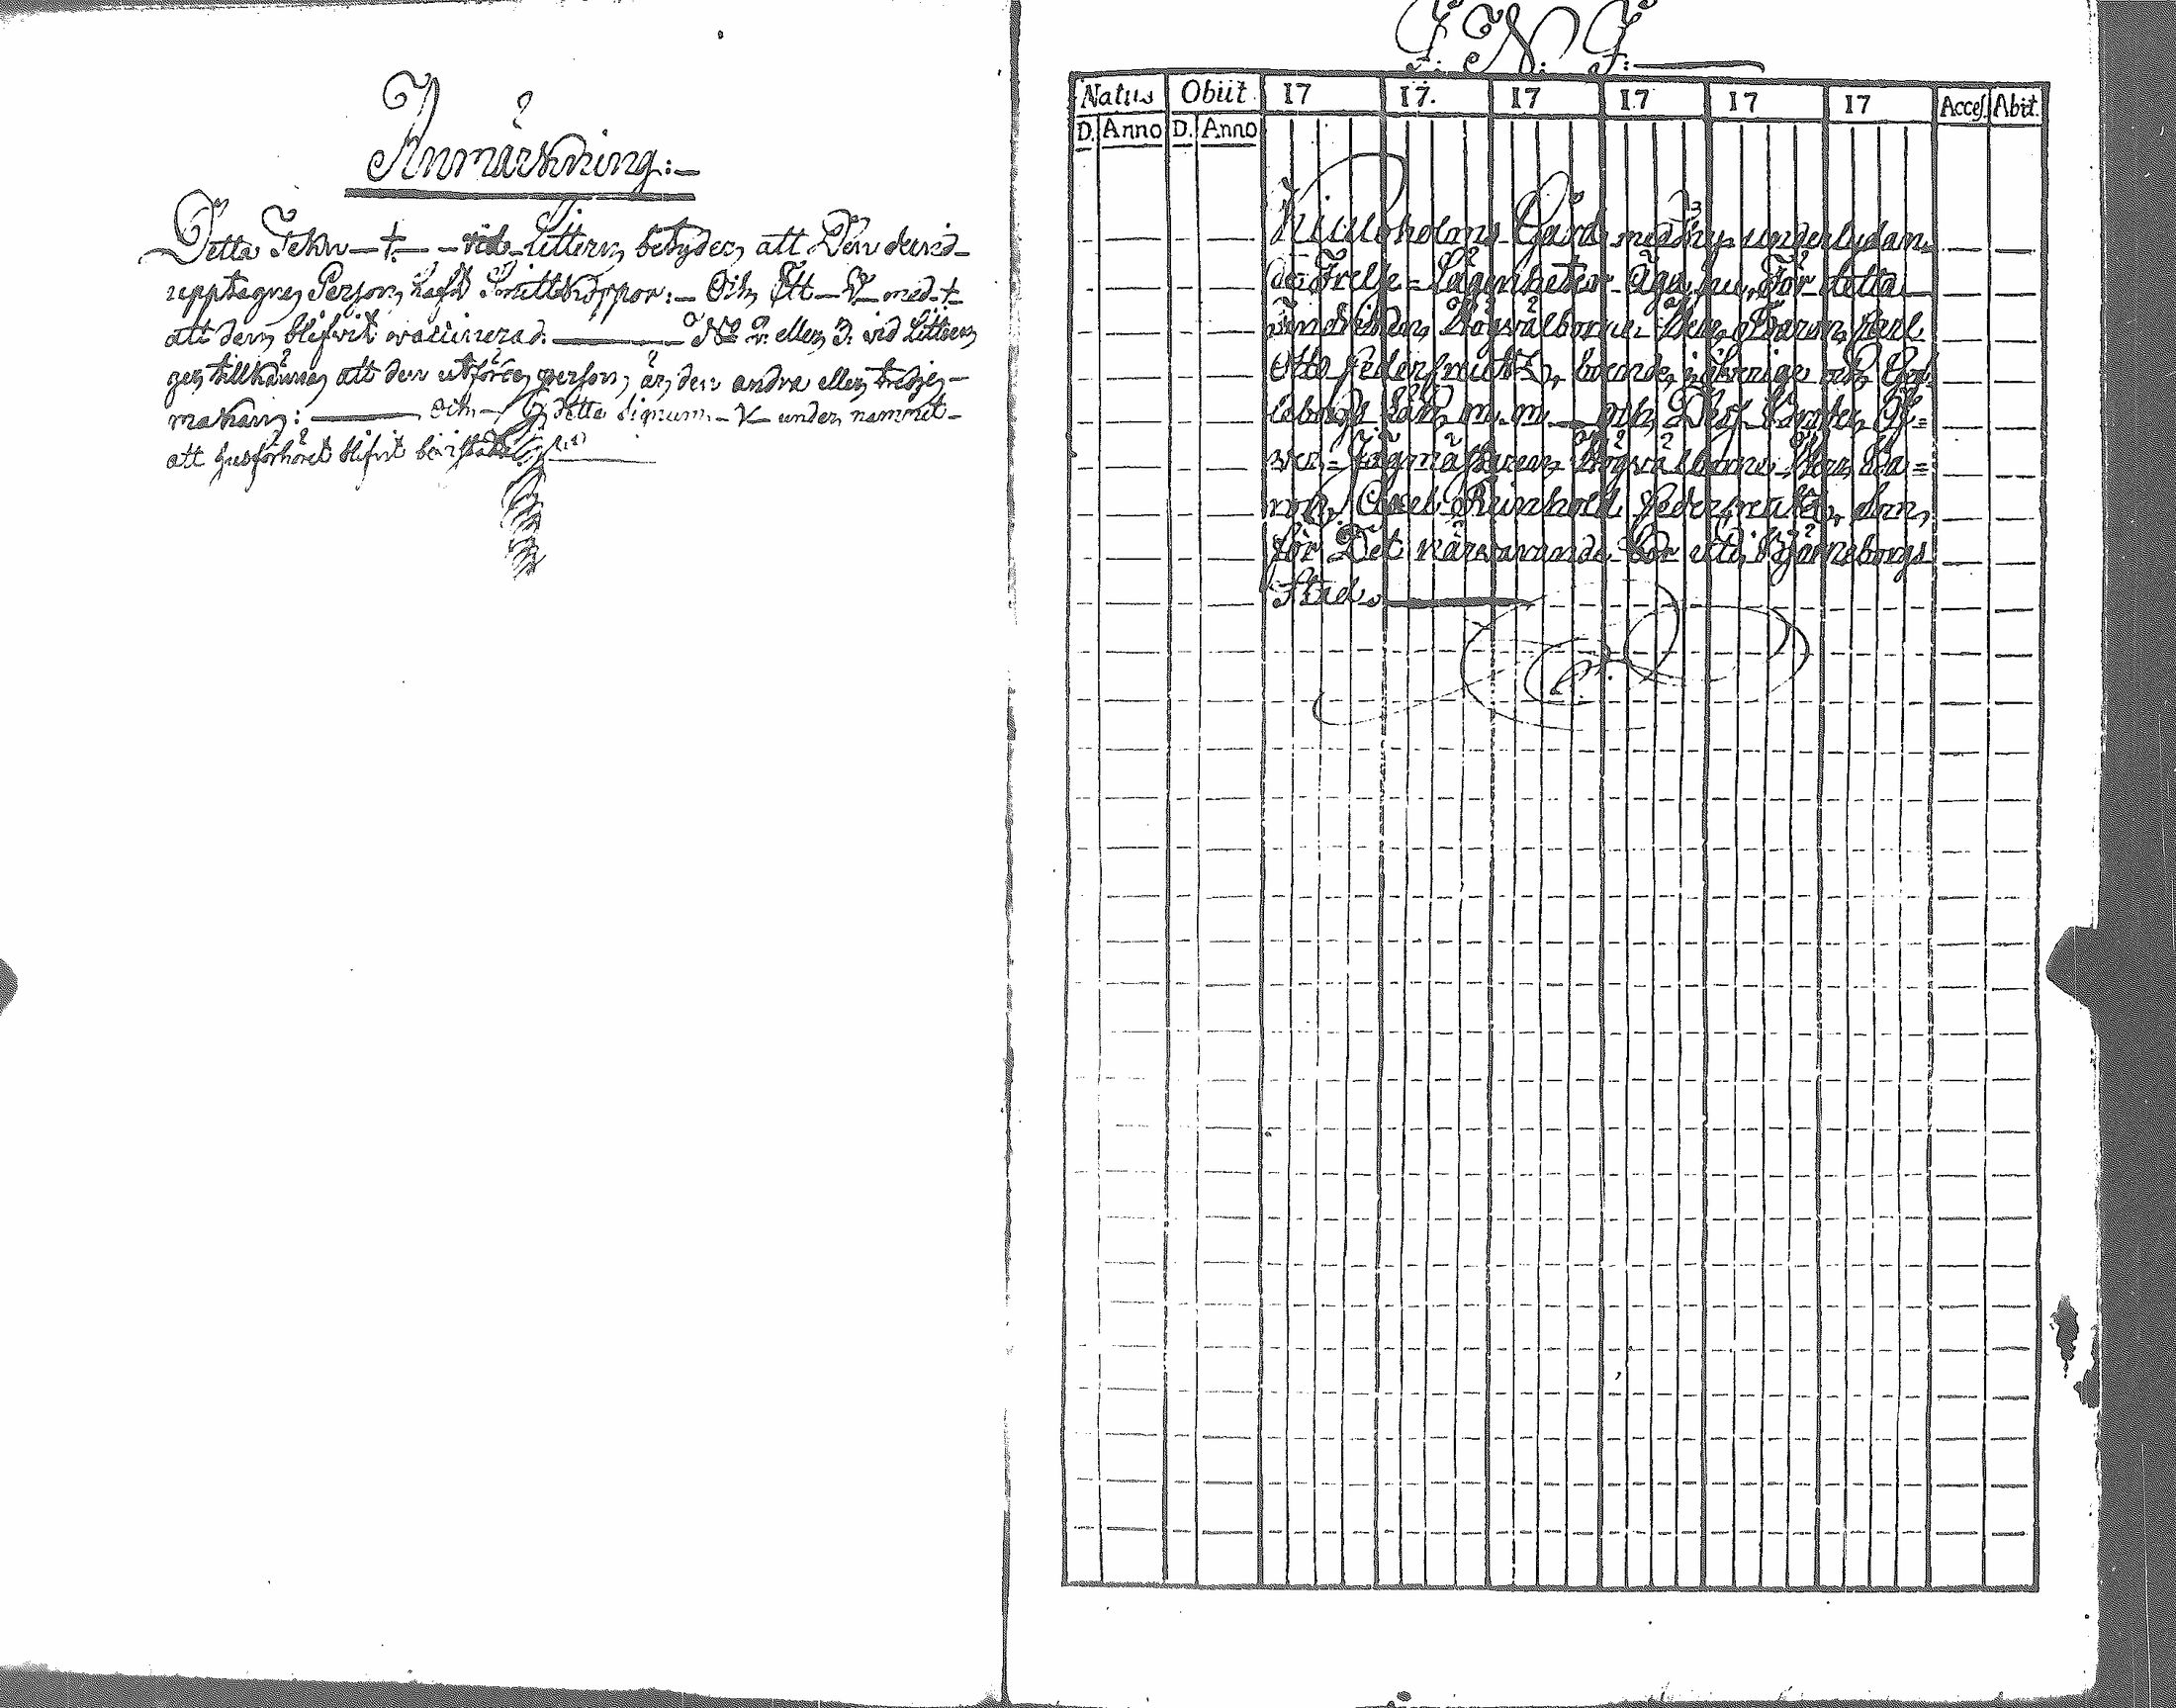 Anmärkning:
Detta Tekn — † — vid Littern betyder, att Den dervid
upptagne Person, haft Smittkoppor: — Och Ett — V — med †
att den blifvit vaccinerad. — No 2. eller 3. vid Littern
ger tillkänna att den utförda person, är den andra eller tredje
makan: — Och detta Signum — V — under nammet
att husförhöret blifvit bevistadt
I: N: J:
Natus Obiit 17 17. 17 17 17 17 Acces. Abit.
D. Anno D. Anno
holms Gård med 3ne underlydan=
de Frelse=Lägenheter Äga nu, För detta
Högvälborne Herr Baron Carl
Otto Cederkreutz, boende i Sverige och
och Dess Broder
Jägmästaren Högvälborne Herr Ba=
ron Axel Reinhold Cederkreutz, som
för Det närvarande bor uti Björneborgs
Stad.